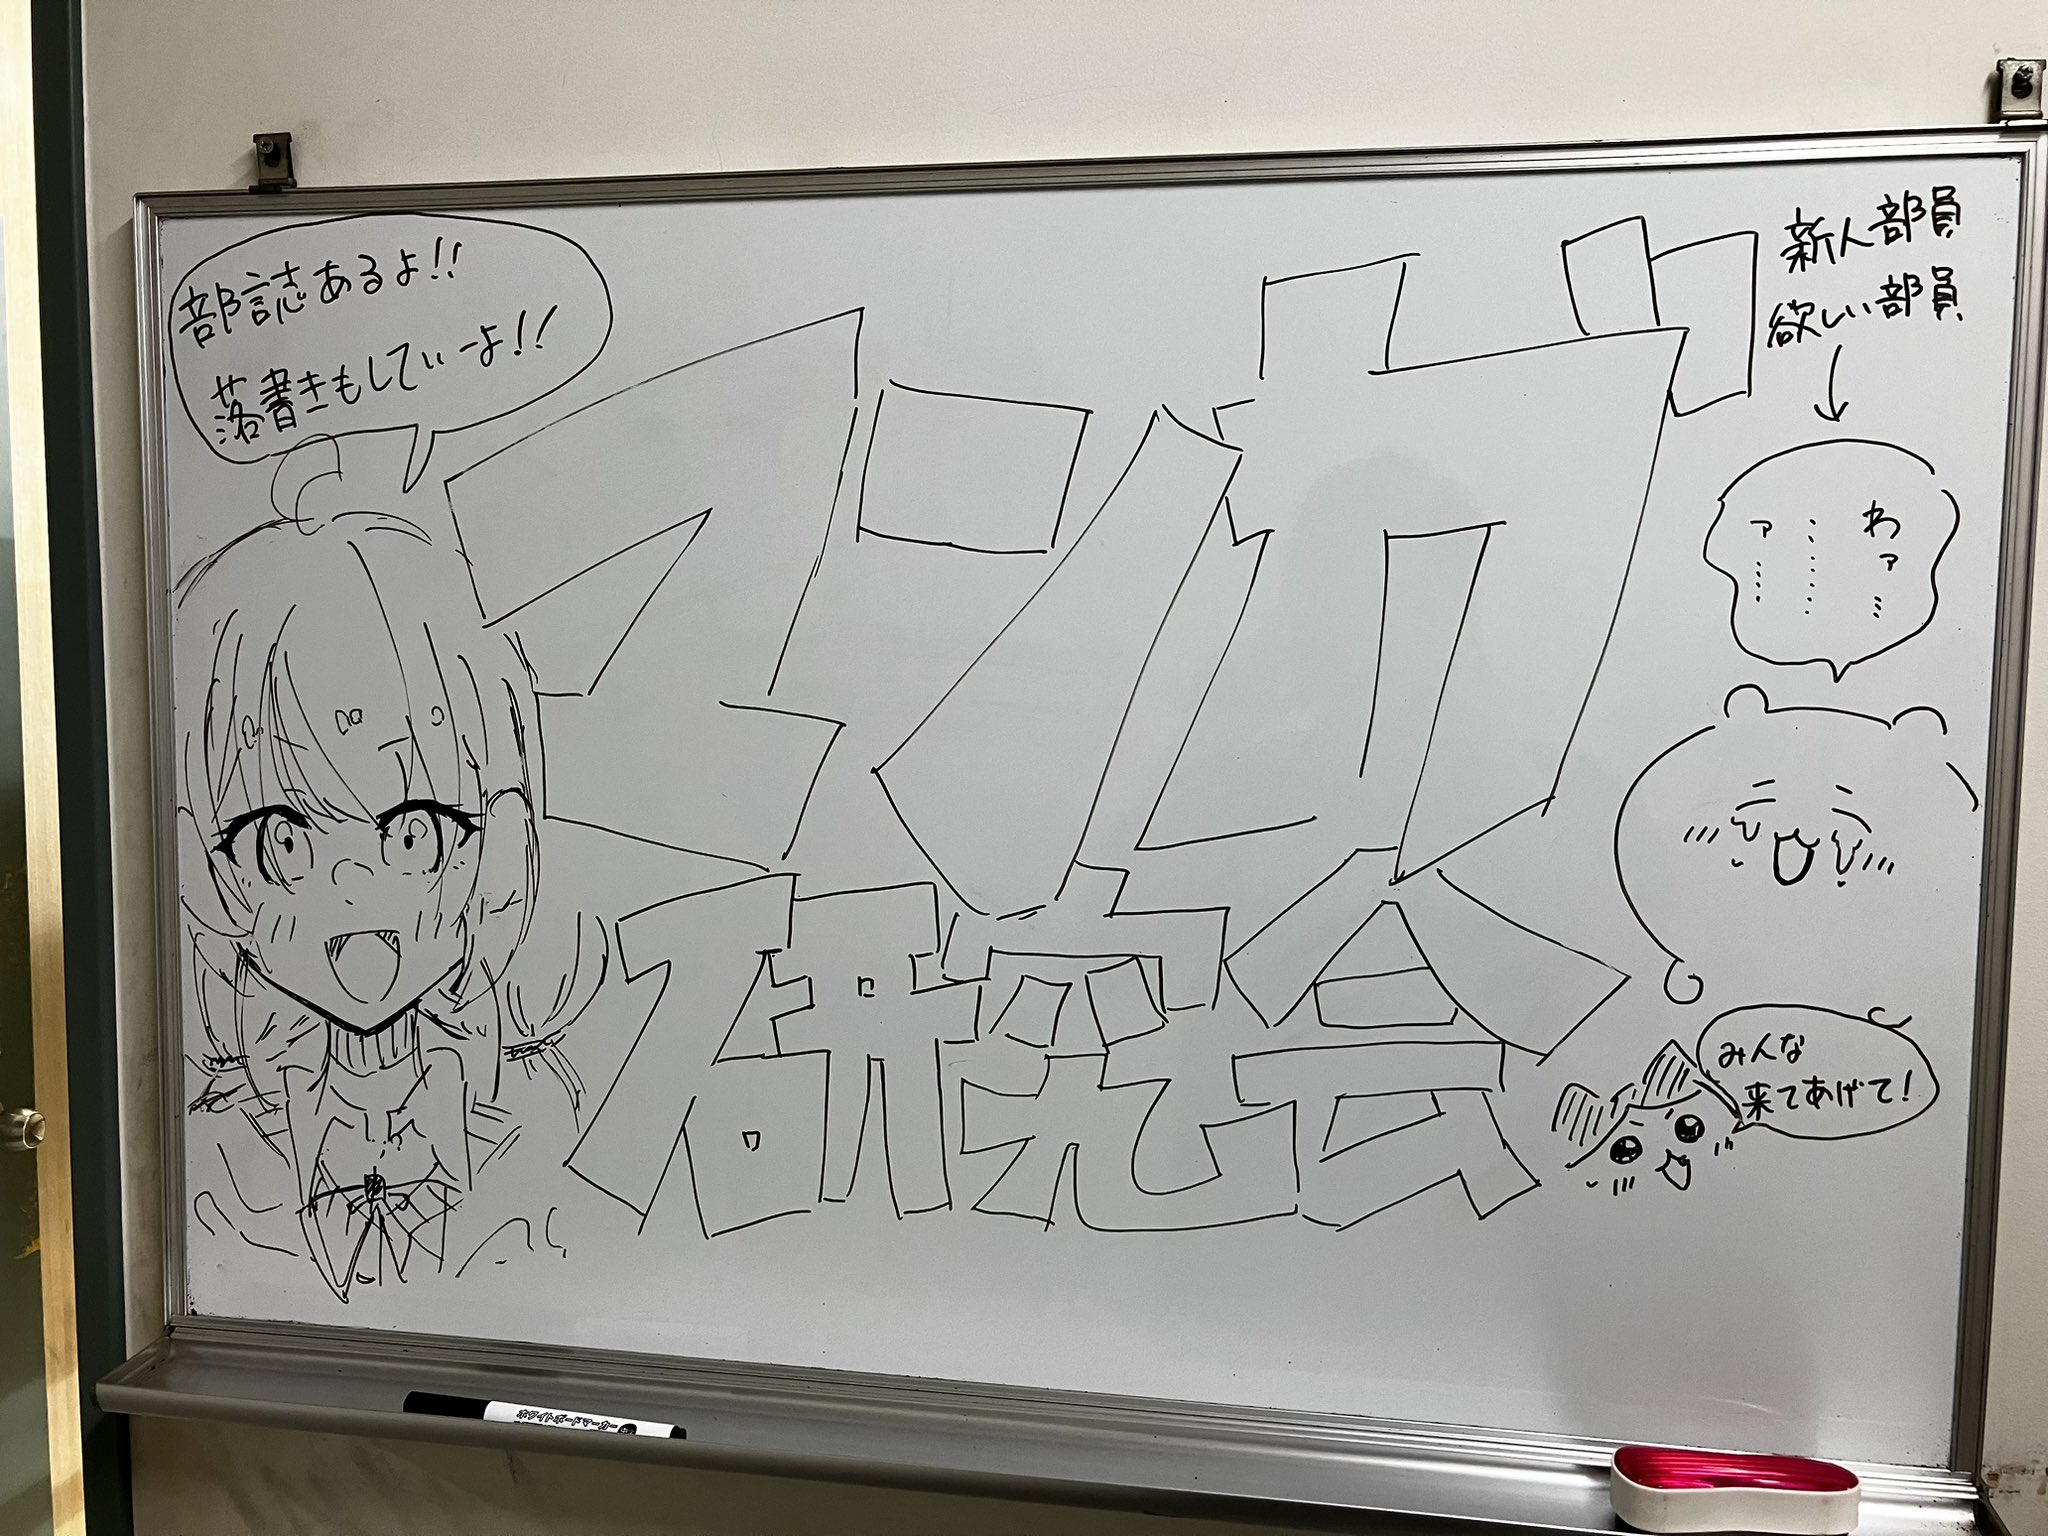 部誌あるよ!!
落書きもしていーよ!!
マンガ
研究会
新人部員
欲しい部員
↓
わァ…
……
ァ……
みんな
来てあげて!
ホワイトボードマーカー